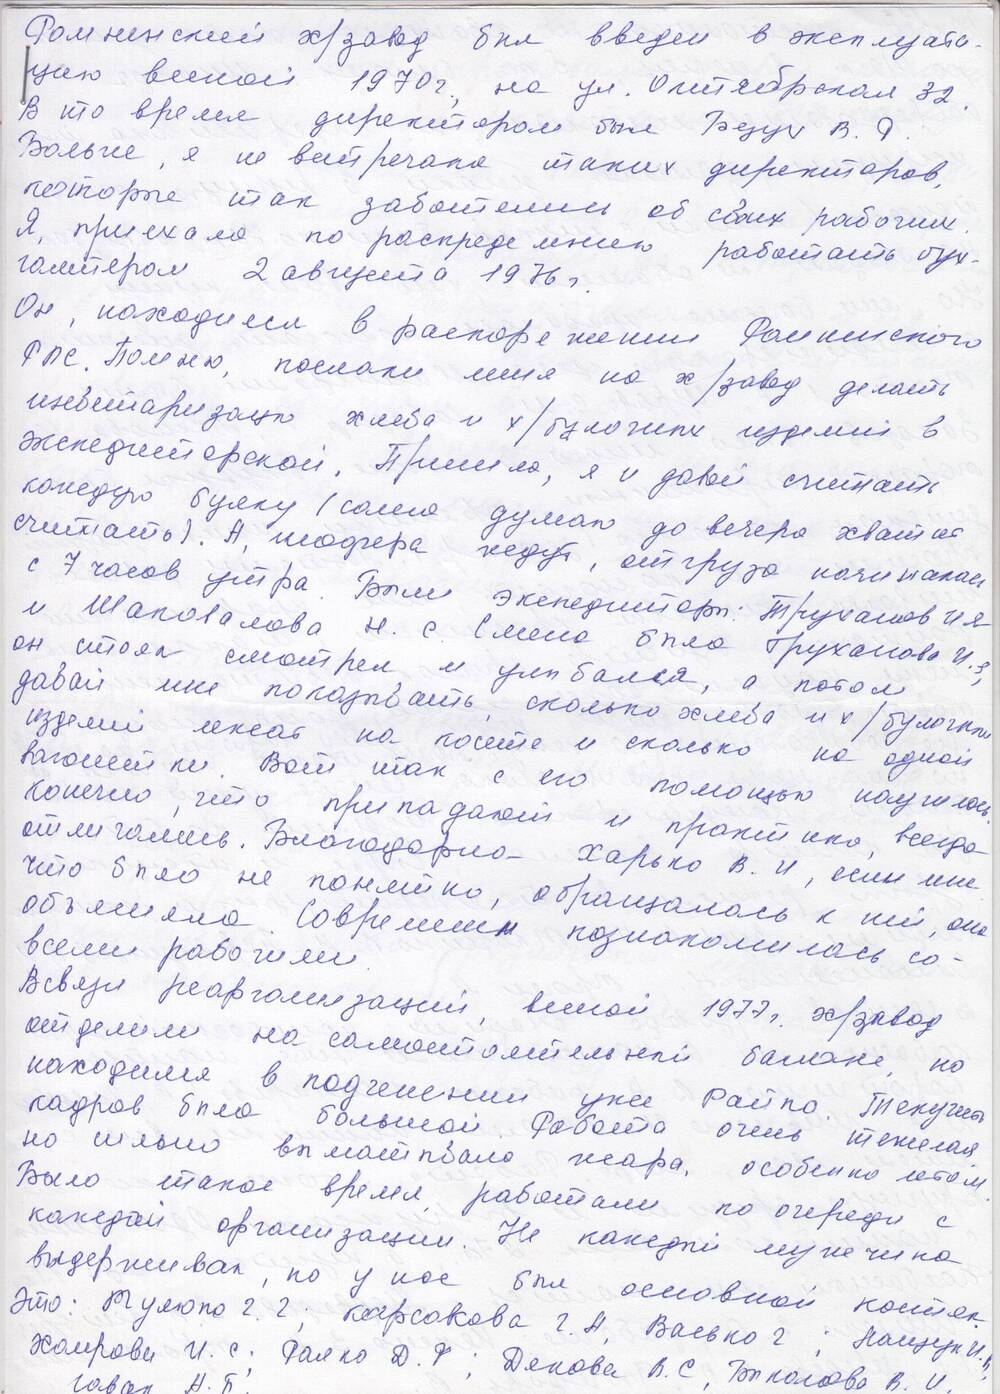 Ромненский х/завод был введен в эксплуата-
цию весной 1970г, на ул. Октябрская 32.
В то время директором был Безух В. Ф.
Больше, я не встречала таких директоров,
которые так заботелись об своих рабочих.
Я, приехала по распределению работать бух-
галтером 2 августа 1976г.
Он, находился в распоряжении Ромненского
РПС. Помню, послали меня на х/завод делать
инветаризацю хлеба и х/булочных изделий в
экспедиторской. Пришла, я и давай считать
каждую булку (сама думаю до вечера хватит
считать). А, шофера ждут, отгруза начиналась
с 7 часов утра. Были экспедиторы: Труханов И Я
и Шаповалова Н. С. Смена была Труханова И. Я,
он стоял смотрел и улыбался, а потом
давай мне показывать, сколько хлеба и х/булочных
изделий лежат на лотке и сколько на одной
вагонетки. Вот так с его помощью научилась.
Конечно, что припадают и практика, всегда
отличались. Благодарна Харько В. И, если мне
что было не понятно, обращалась к ней, она
объясняла. Современем познакомилась со-
всеми рабочими.
Всвязи реорганизаций, весной 1977г. х/завод
отделили на самостоятельный баланс, но
находился в подчинении уже Райпо. Текучесть
кадров была большой. Работа очень тяжелая
но сильно выматывала жара, особенно летом.
Было такое время, работали по очереди с
каждой организации. Не каждый мужчина
выдерживал, но у нас был основной костяк.
Это: Гулюпо Г. Г; Карсакова Г. А, Васько Г; Нащук И. В;
И. С; Фалко Д. Ф; Дякова В. С, В. И,
А. Г.